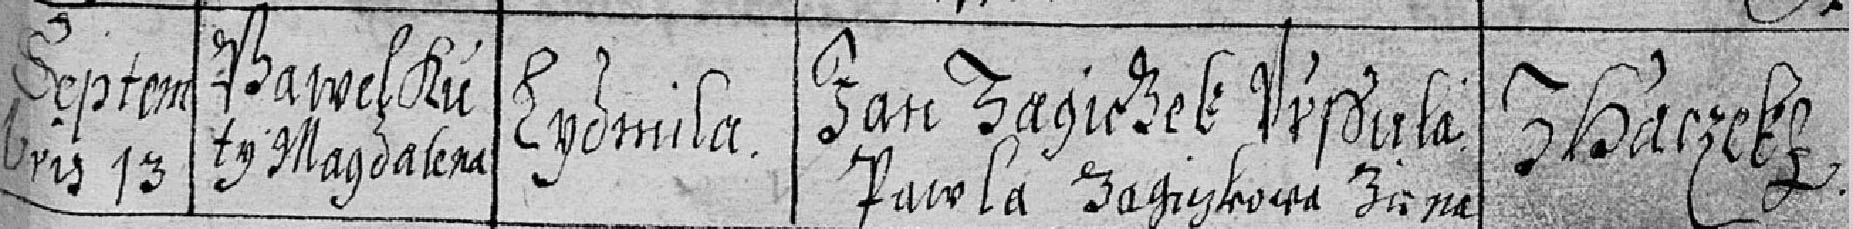 Septem
bris 13
Pawel Ku
ty Magdalena
Lydmila.
Jan Zagiczek Urssula
Pawla Zagiczkowa Zena
Z Haczek.